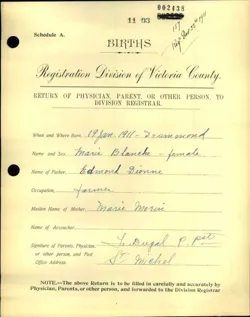 002438
11 63
Schedule A.
BIRTHS
Registration Division of Victoria County.
RETURN OF PHYSICIAN, PARENT, OR OTHER PERSON, TO
DIVISION REGISTRAR.
When and Where Born, 19 Jan. 1911 - Drummond
Name and Sex, Marie Blanche - female
Name of Father, Edmond Dionne
Occupation, Farmer
Maiden Name of Mother, Marie Morin
Name of Accoucher,
Signature of Parents, Physician,
or other person, and Post
Office Address.
NOTE.—The above Return is to be filled in carefully and accurately by
Physician, Parents, or other person, and forwarded to the Division Registrar